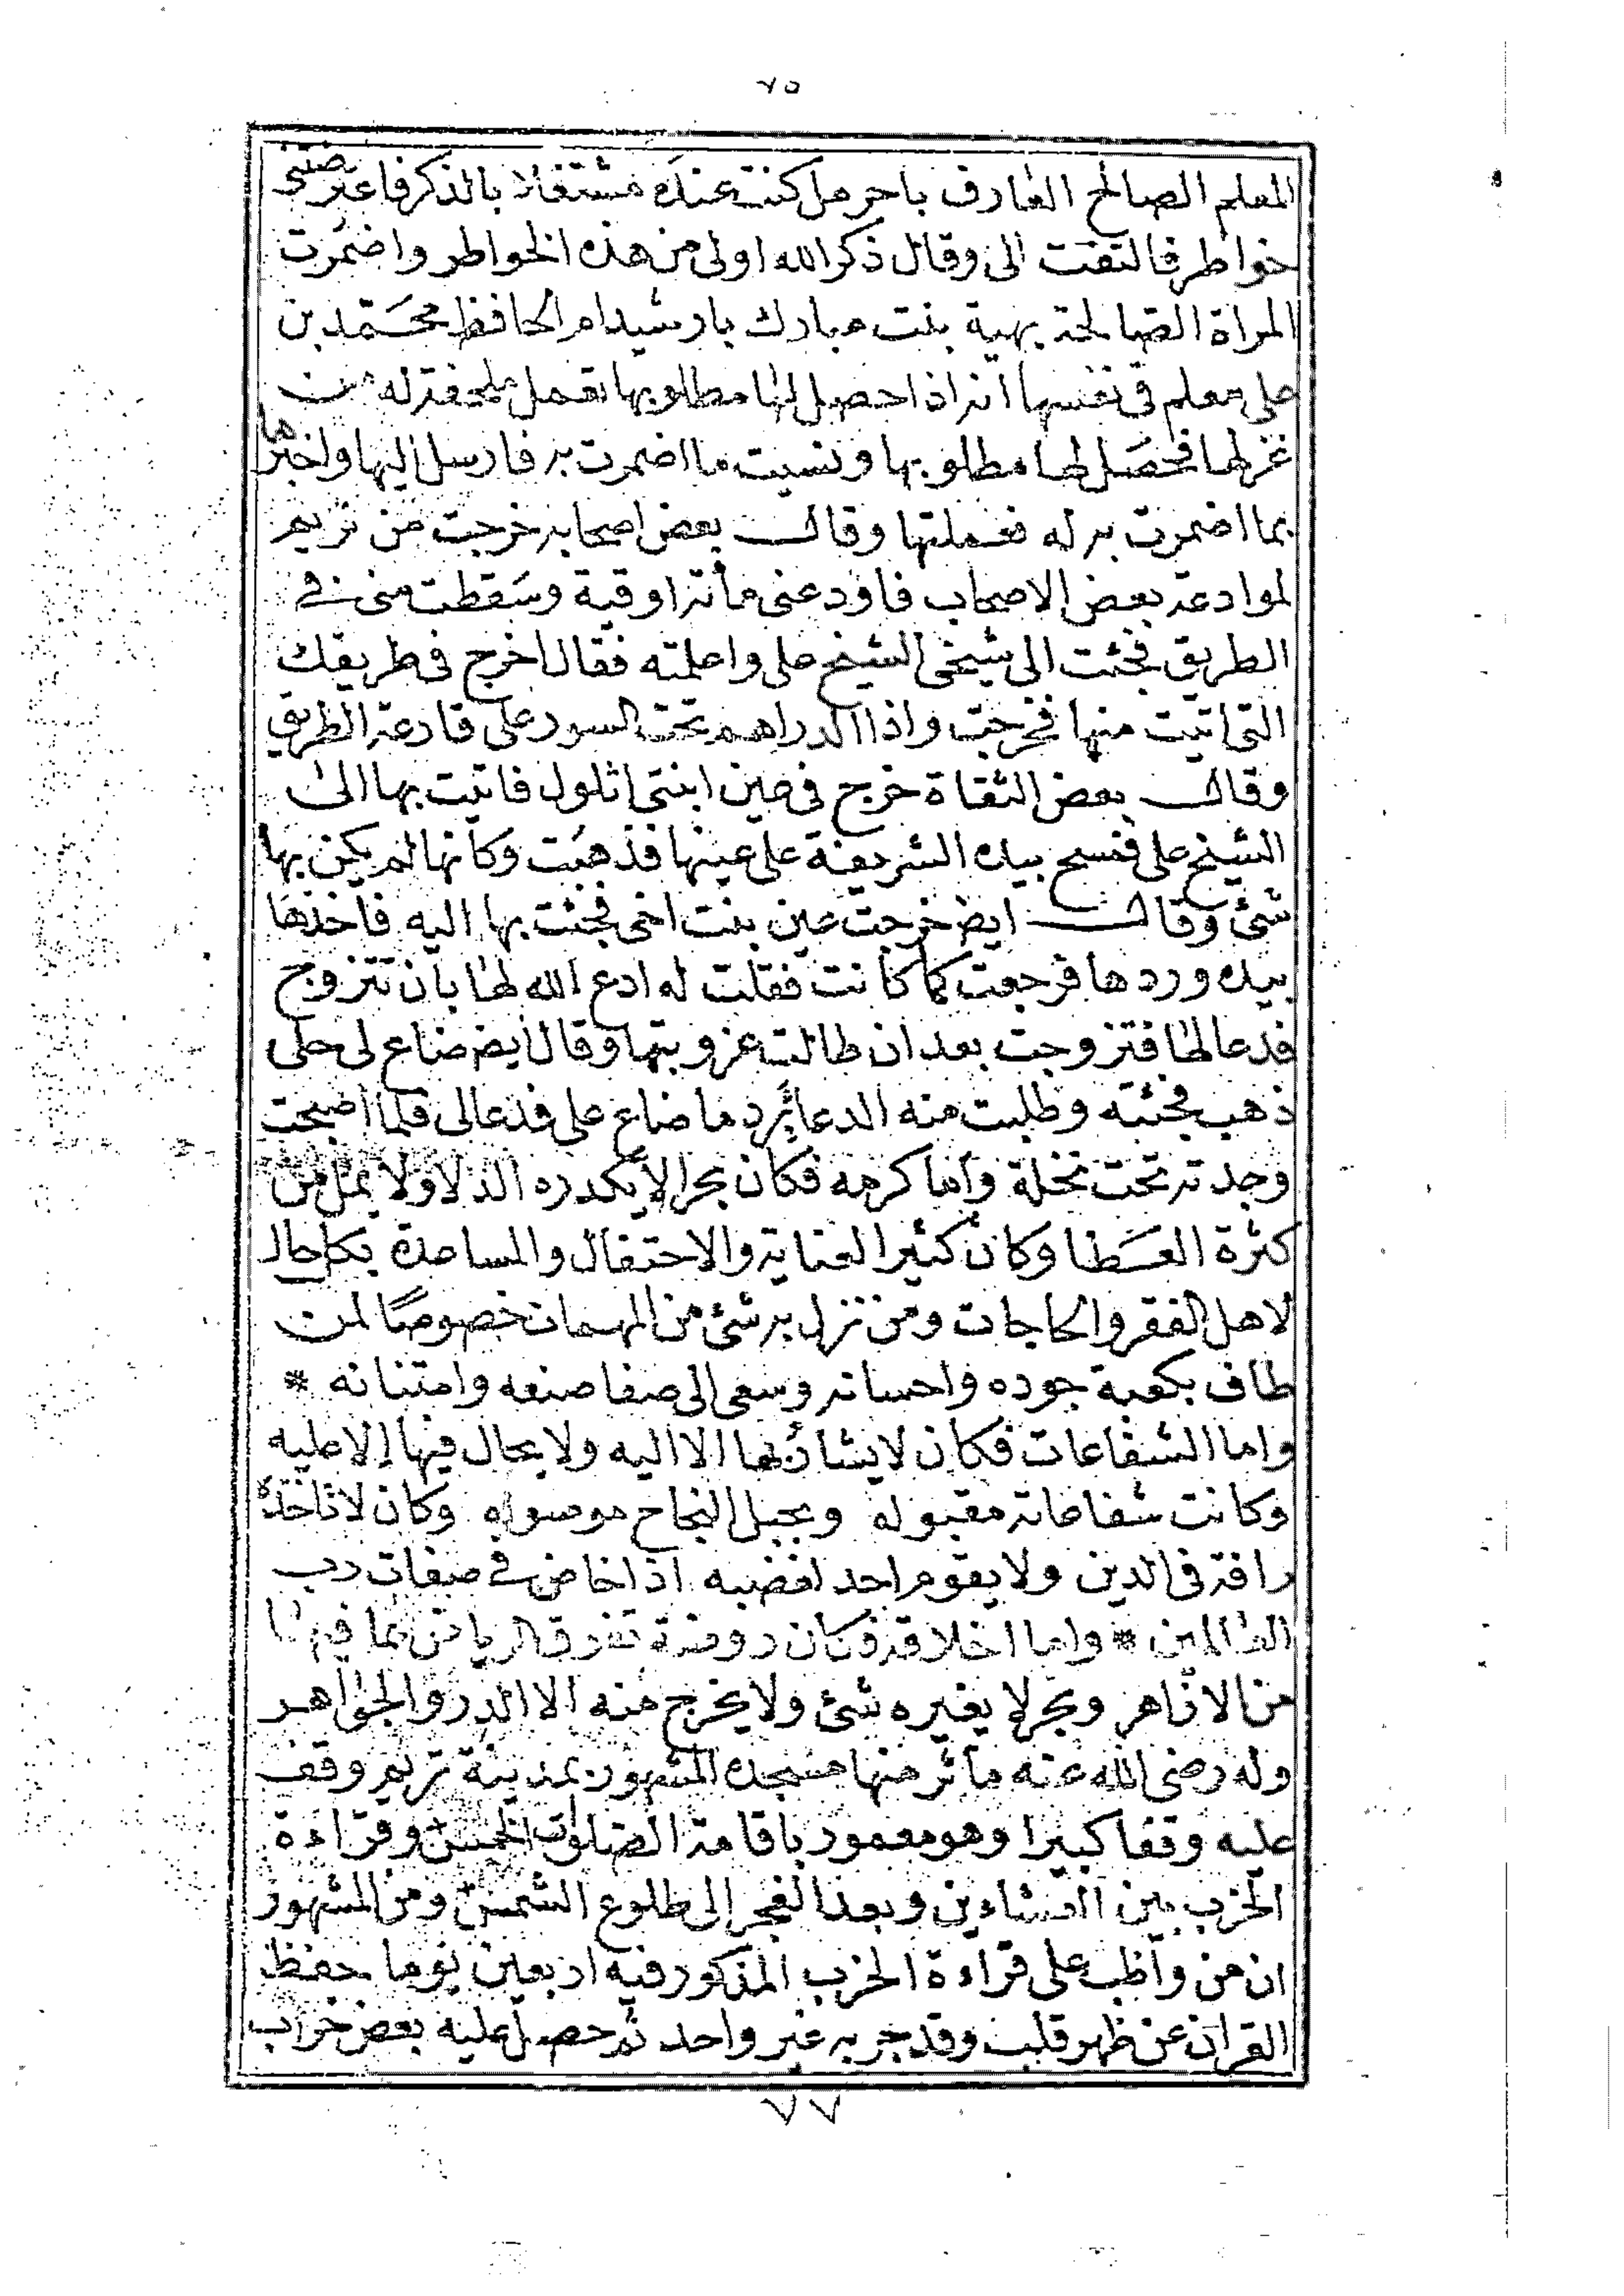 ٧٥
المعلم الصالح العارف باحرمل كنت عنده مشتغلا بالذكر فاعترضتني
خواطر فالتفت الى وقال ذكر الله اولى من هذه الخواطر واضمرت
المراة الصالحة بهية بنت مبارك بارشيد ام الحافظ محمد بن
على معلم في نفسها انه اذا حصل لها مطلوبها تعمل ملحفة له من
غزلها فحصل لها مطلوبها ونسيت ما اضمرت به فارسل اليها واخبرها
بما اضمرت به له فعملتها وقالـــ بعض اصحابه خرجت من تريم
لموادعة بعض الاصحاب فاودعني مأتة اوقية وسقطت منى في
الطريق فجئت الى شيخى الشيخ على واعلمته فقال اخرج في طريقك
التى اتيت منها فخرجت واذا الدراهم تحت السور على قارعة الطريق
وقالـــ بعض الثقاة خرج في عين ابنتى اثلول فاتيت بها الى
الشيخ على فمسح بيده الشريفة على عينها فذهبت وكانها لم يكن بها
شئ وقالـــ ايضا خرجت عين بنت اخى فجئت بها اليه فاخذها
بيده وردها فرجعت كما كانت فقلت له ادع الله لها بان تتزوج
فدعا لها فتزوجت بعد ان طالت عزوبتها وقال ايضا ضاع لى حلى
ذهب فجئته وطلبت منه الدعا برد ما ضاع على فدعا لى فلما اصبحت
وجدته تحت نخلة واما كرمه فكان بحرا لا يكدره الدلا ولا يمل من
كثرة العطا وكان كثير العناية والاحتفال والمساعدة بكل حال
لاهل الفقر والحاجات ومن نزل به شئ من المهمات خصوصًا لمن
طاف بكعبة جوده واحسانه وسعى الى صفا صنعه وامتنانه *
واما الشفاعات فكان لا يشار بها الا اليه ولا يحال فيها إلا عليه
وكانت شفاعاته مقبوله وبحبل النجاح موصوله وكان لا تاخذه
رافة في الدين ولا يقوم احد لغضبه اذا خاض في صفات رب
العالمين * واما اخلاقه فكان روضة تفوق الرياض بما فيها
من الازاهر وبحر لا يغيره شئ ولا يخرج منه الا الدر والجواهر
وله رضى الله عنه مآثر منها مسجده المشهور بمدينة تريم وقف
عليه وقفا كبيرا وهو معمور باقامة الصلوات الخمس وقراءة
الحزب بين العشاءين وبعد الفجر إلى طلوع الشمس ومن المشهور
ان من واظب على قراءة الحزب المذكور فيه اربعين يوما حفظ
القران عن ظهر قلب وقد جربه غير واحد ثم حصل عليه بعض خراب
٧٧